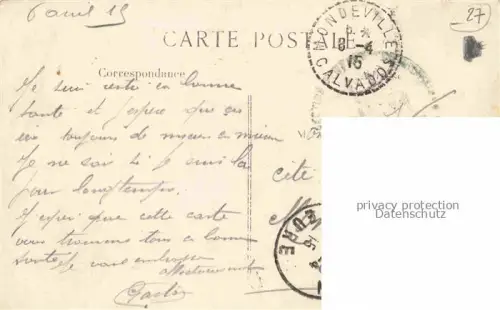 6 avril 15
27
CARTE POSTALE
MONDEVILLE
8-4
15
CALVADOS
Correspondance
Je suis resté en bonne
santé et j'espère que ça
va toujours de mieux en mieux
Je ne sai si je suis là
pour longtemps.
J'espère que cette carte
vous trouvera tous en bonne
santé Je vous embrasse
affectueusement
Gaston
cité
EURE
privacy protection
Datenschutz